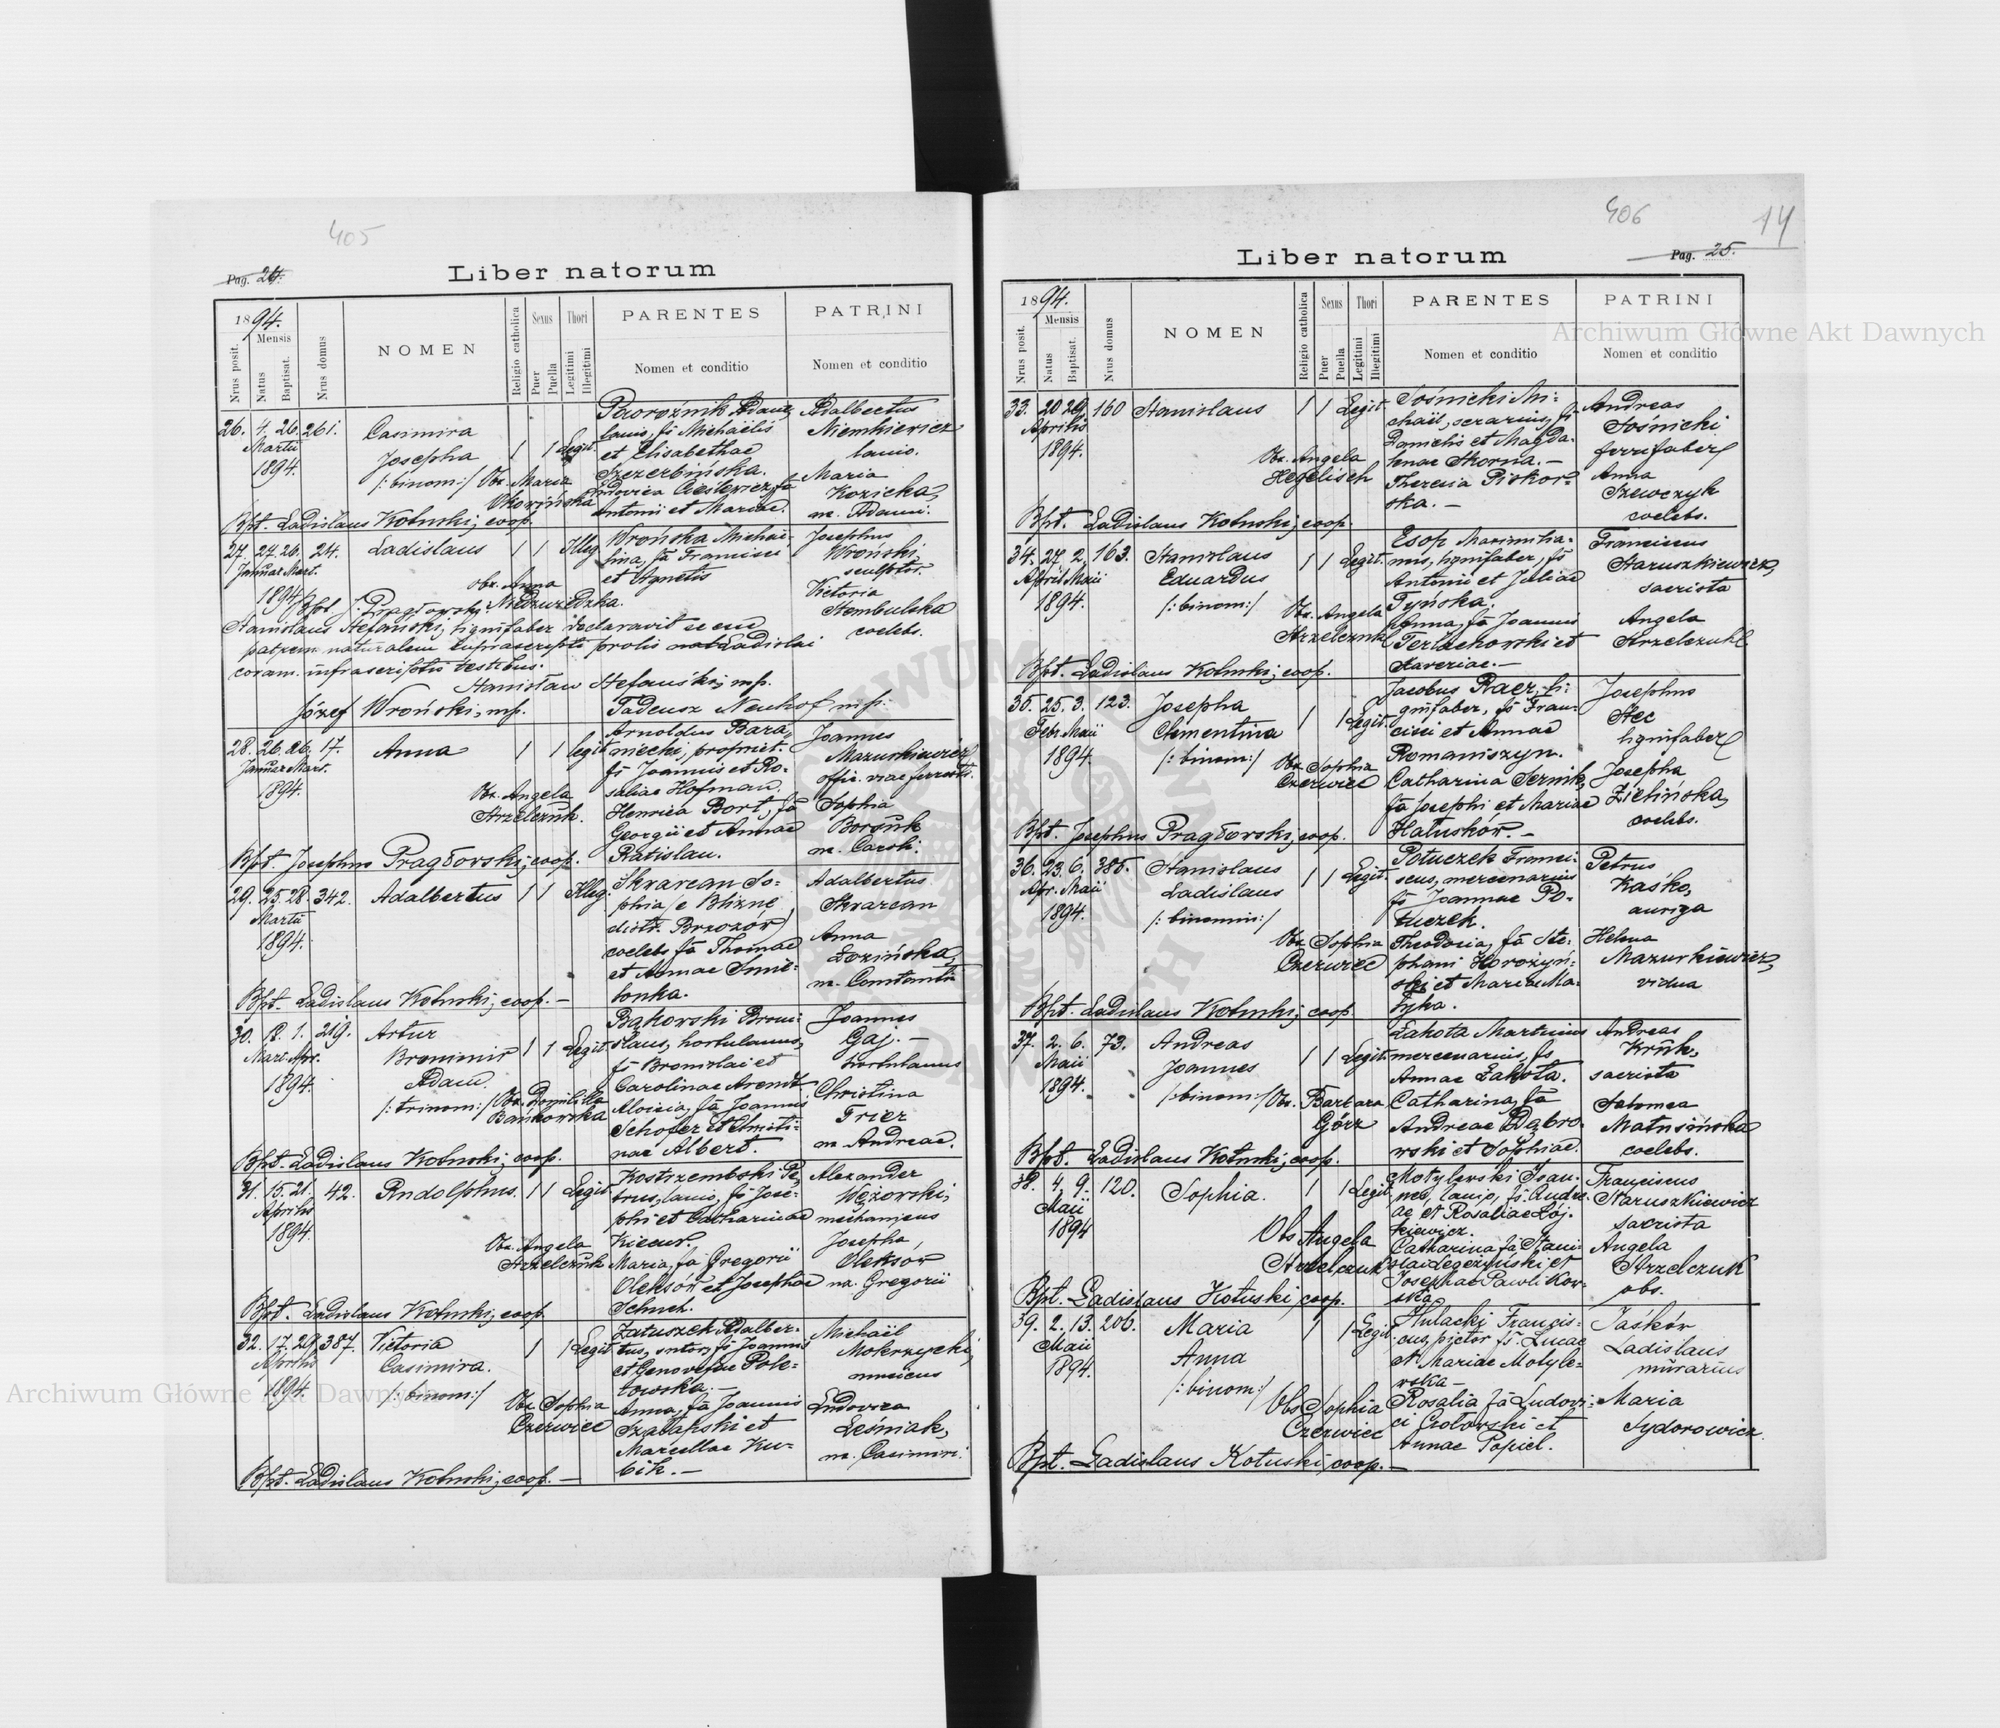 405
Pag. 24.
Liber natorum
1894.
Mensis
Nrus posit.
Natus
Baptisat.
Nrus domus
NOMEN
Religio catholica
Sexus
Puer
Puella
Thori
Legitimi
Illegitimi
PARENTES
Nomen et conditio
PATRINI
Nomen et conditio
26. 4. 26. 261.
Martii
1894.
Casimira
Josepha
/: binom :/
1 1 Legit.
Obs. Maria
Powroźnik Adam,
lanio, fs Michaëlis
et Elisabethae
Szczerbińska.
Ludovica Cieślewicz, fa
Antonii et Mariae.
Adalbertus
Niemkiewicz
lanio.
Maria
Kozicka,
ux. Adami.
Bpt. Ladislaus Kotuski, coop.
27. 24. 26. 24.
Januar Mart.
1894
Ladislaus
1 1 Illeg.
obs. Anna
Niedzwiedzka.
Wrońska Michaë-
lina, fa Francisci
et Agnetis
Josephus
Wroński,
sculptor.
Victoria
Stembulska
coelebs.
Bpt. J. Pragłowski
Stanislaus Stefański, lignifaber declaravit se esse
patrem naturalem suprascripti prolis Ladislai
coram infrascriptis testibus.
Stanisław Stefański, mp.
Józef Wroński, mp. Tadeusz Neuhof mp.
28. 26. 26. 17.
Januar Mart.
1894.
Anna
1 1 legit
Obs. Angela
Strzelczuk.
Arnoldus Bara-
niecki, propriet.
fs Joannis et Ro-
saliae Hofman.
Henrica Bort, fa
Georgii et Annae
Ratislau.
Joannes
Mazurkiewicz
offic. viae ferrest.
Sophia
Borsuk
ux. Caroli.
Bpt. Josephus Pragłowski, coop.
29. 25. 28. 342.
Martii
1894.
Adalbertus
1 1 Illeg.
Skwarcan So-
phia /e Blizne
distr. Brzozów/
coelebs fa Thomae
et Annae Śmie-
tonka.
Adalbertus
Skwarcan
Anna
Łozińska,
ux. Constantii
Bpt. Ladislaus Kotuski, coop. -
30. 18. 1. 219.
Mart. Apr.
1894.
Artur
Bronimir
Adam.
/: trinom :/
1 1 Legit.
Obs. Domicilla
Bańkowska
Bąkowski Broni-
slaus, hortulanus,
fs Bronislai et
Carolinae Arendt
Aloisia, fa Joannis
Schofer et Christi-
nae Albert.
Joannes
Gaj. -
hortulanus
Christina
Frier
ux. Andreae.
Bpt. Ladislaus Kotuski, coop.
31. 15. 21. 42.
Aprilis
1894.
Rudolphus.
1 1 Legit
Obs. Angela
Strzelczuk
Kostrzembski Pe-
trus, lanio, fs Jose-
phi et Catharinae
Kiecur.
Maria, fa Gregorii
Oleksów et Josephae
Schuch.
Alexander
Wężowski,
mechanicus
Josepha,
Oleksów
ux. Gregorii
Bpt. Ladislaus Kotuski, coop.
32. 17. 29. 387.
Aprilis
1894.
Victoria
Casimira.
/: binom :/
1 1 Legit
Obs. Sophia
Czerwiec
Załuszek Adalber-
tus, sutor, fs Joannis
et Genovefae Pole-
towska. -
Anna, fa Joannis
et
Marcellae Ku-
bik. -
Michaël
Mokrzycki,
musicus
Ludovica
Leśniak,
ux. Casimiri.
Bpt. Ladislaus Kotuski, coop. -
406
14
Pag. 25.
Liber natorum
1894.
Mensis
Nrus posit.
Natus
Baptisat.
Nrus domus
NOMEN
Religio catholica
Sexus
Puer
Puella
Thori
Legitimi
Illegitimi
PARENTES
Nomen et conditio
PATRINI
Nomen et conditio
Archiwum Główne Akt Dawnych
33. 20 29. 160
Aprilis
1894.
Stanislaus
1 1 Legit.
Obs. Angela
Hegelisch
Sośnicki Mi-
chaël, serarius, fs
Danielis et Magda-
lenae Skorna. -
Theresia Piskor-
ska. -
Andreas
Sośnicki
ferrifaber
Anna
Szewczyk
coelebs.
Bpt. Ladislaus Kotuski, coop.
34. 27. 2. 163.
April Maii
1894.
Stanislaus
Eduardus
/: binom :/
1 1 Legit.
Obs. Angela
Strzelczuk
Esop Maximilia-
nus, lignifaber, fs
Antonii et Juliae
Tyńska.
Anna, fa Joannis
Terlachowski et
Xaveriae. -
Franciscus
Staruszkiewicz,
sacrista
Angela
Strzelczuk
Bpt. Ladislaus Kotuski, coop.
35. 25. 3. 123.
Febr. Maii
1894.
Josepha
Clementina
/: binom :/
1 1 Legit.
Obs. Sophia
Czerwiec
Jacobus Racz, li-
gnifaber, fs Fran-
cisci et Annae
Romaniszyn.
Catharina Sernik,
fa Josephi et Mariae
Hałuskór. -
Josephus
Stec
lignifaber
Josepha
Zielińska,
coelebs.
Bpt. Josephus Pragłowski, coop.
36. 23. 6. 385.
Apr. Maii
1894.
Stanislaus
Ladislaus
/: binomin :/
1 1 Legit.
Obs. Sophia
Czerwiec
Potuczek Franci-
scus, mercenarius
fs Joannae Po-
tuczek.
Theodosia, fa Ste-
phani Horożyń-
ski et Mariae Ma-
tyka.
Petrus
Kaśko,
auriga
Helena
Mazurkiewicz,
vidua
Bpt. Ladislaus Kotuski, coop
37. 2. 6. 73.
Maii
1894.
Andreas
Joannes
/: binom :/
1 1 Legit.
Obs. Barbara
Górz
Łakota Martinus
mercenarius, fs
Annae Łakota.
Catharina, fa
Andreae Dąbro-
wski et Sophiae.
Andreas
Kruk,
sacrista
Salomea
Matusińska
coelebs.
Bpt. Ladislaus Kotuski, coop.
38. 4. 9. 120.
Maii
1894
Sophia.
1 1 Legit.
Obs Angela
Strzelczuk
Motylewski Joan-
nes, lanio, fs. Andre-
ae et Rosaliae Łój-
kiewicz.
Catharina fa Stani-
slai Legeżyński et
Josephae Pawlikow-
ska
Franciscus
Staruszkiewicz
sacrista
Angela
Strzelczuk
obs.
Bpt. Ladislaus Kotuski coop.
39. 2. 13. 206.
Maii
1894.
Maria
Anna
/: binom :/
1 1 Legit.
Obs Sophia
Czerwiec
Hulacki Francis-
cus, pictor fs. Lucae
et Mariae Motyle-
wska -
Rosalia fa Ludovi-
ci Grotowski et
Annae Popiel.
Jaśków
Ladislaus
murarius
Maria
Sydorowicz
Bpt. Ladislaus Kotuski, coop. -
Archiwum Główne Akt Dawnych